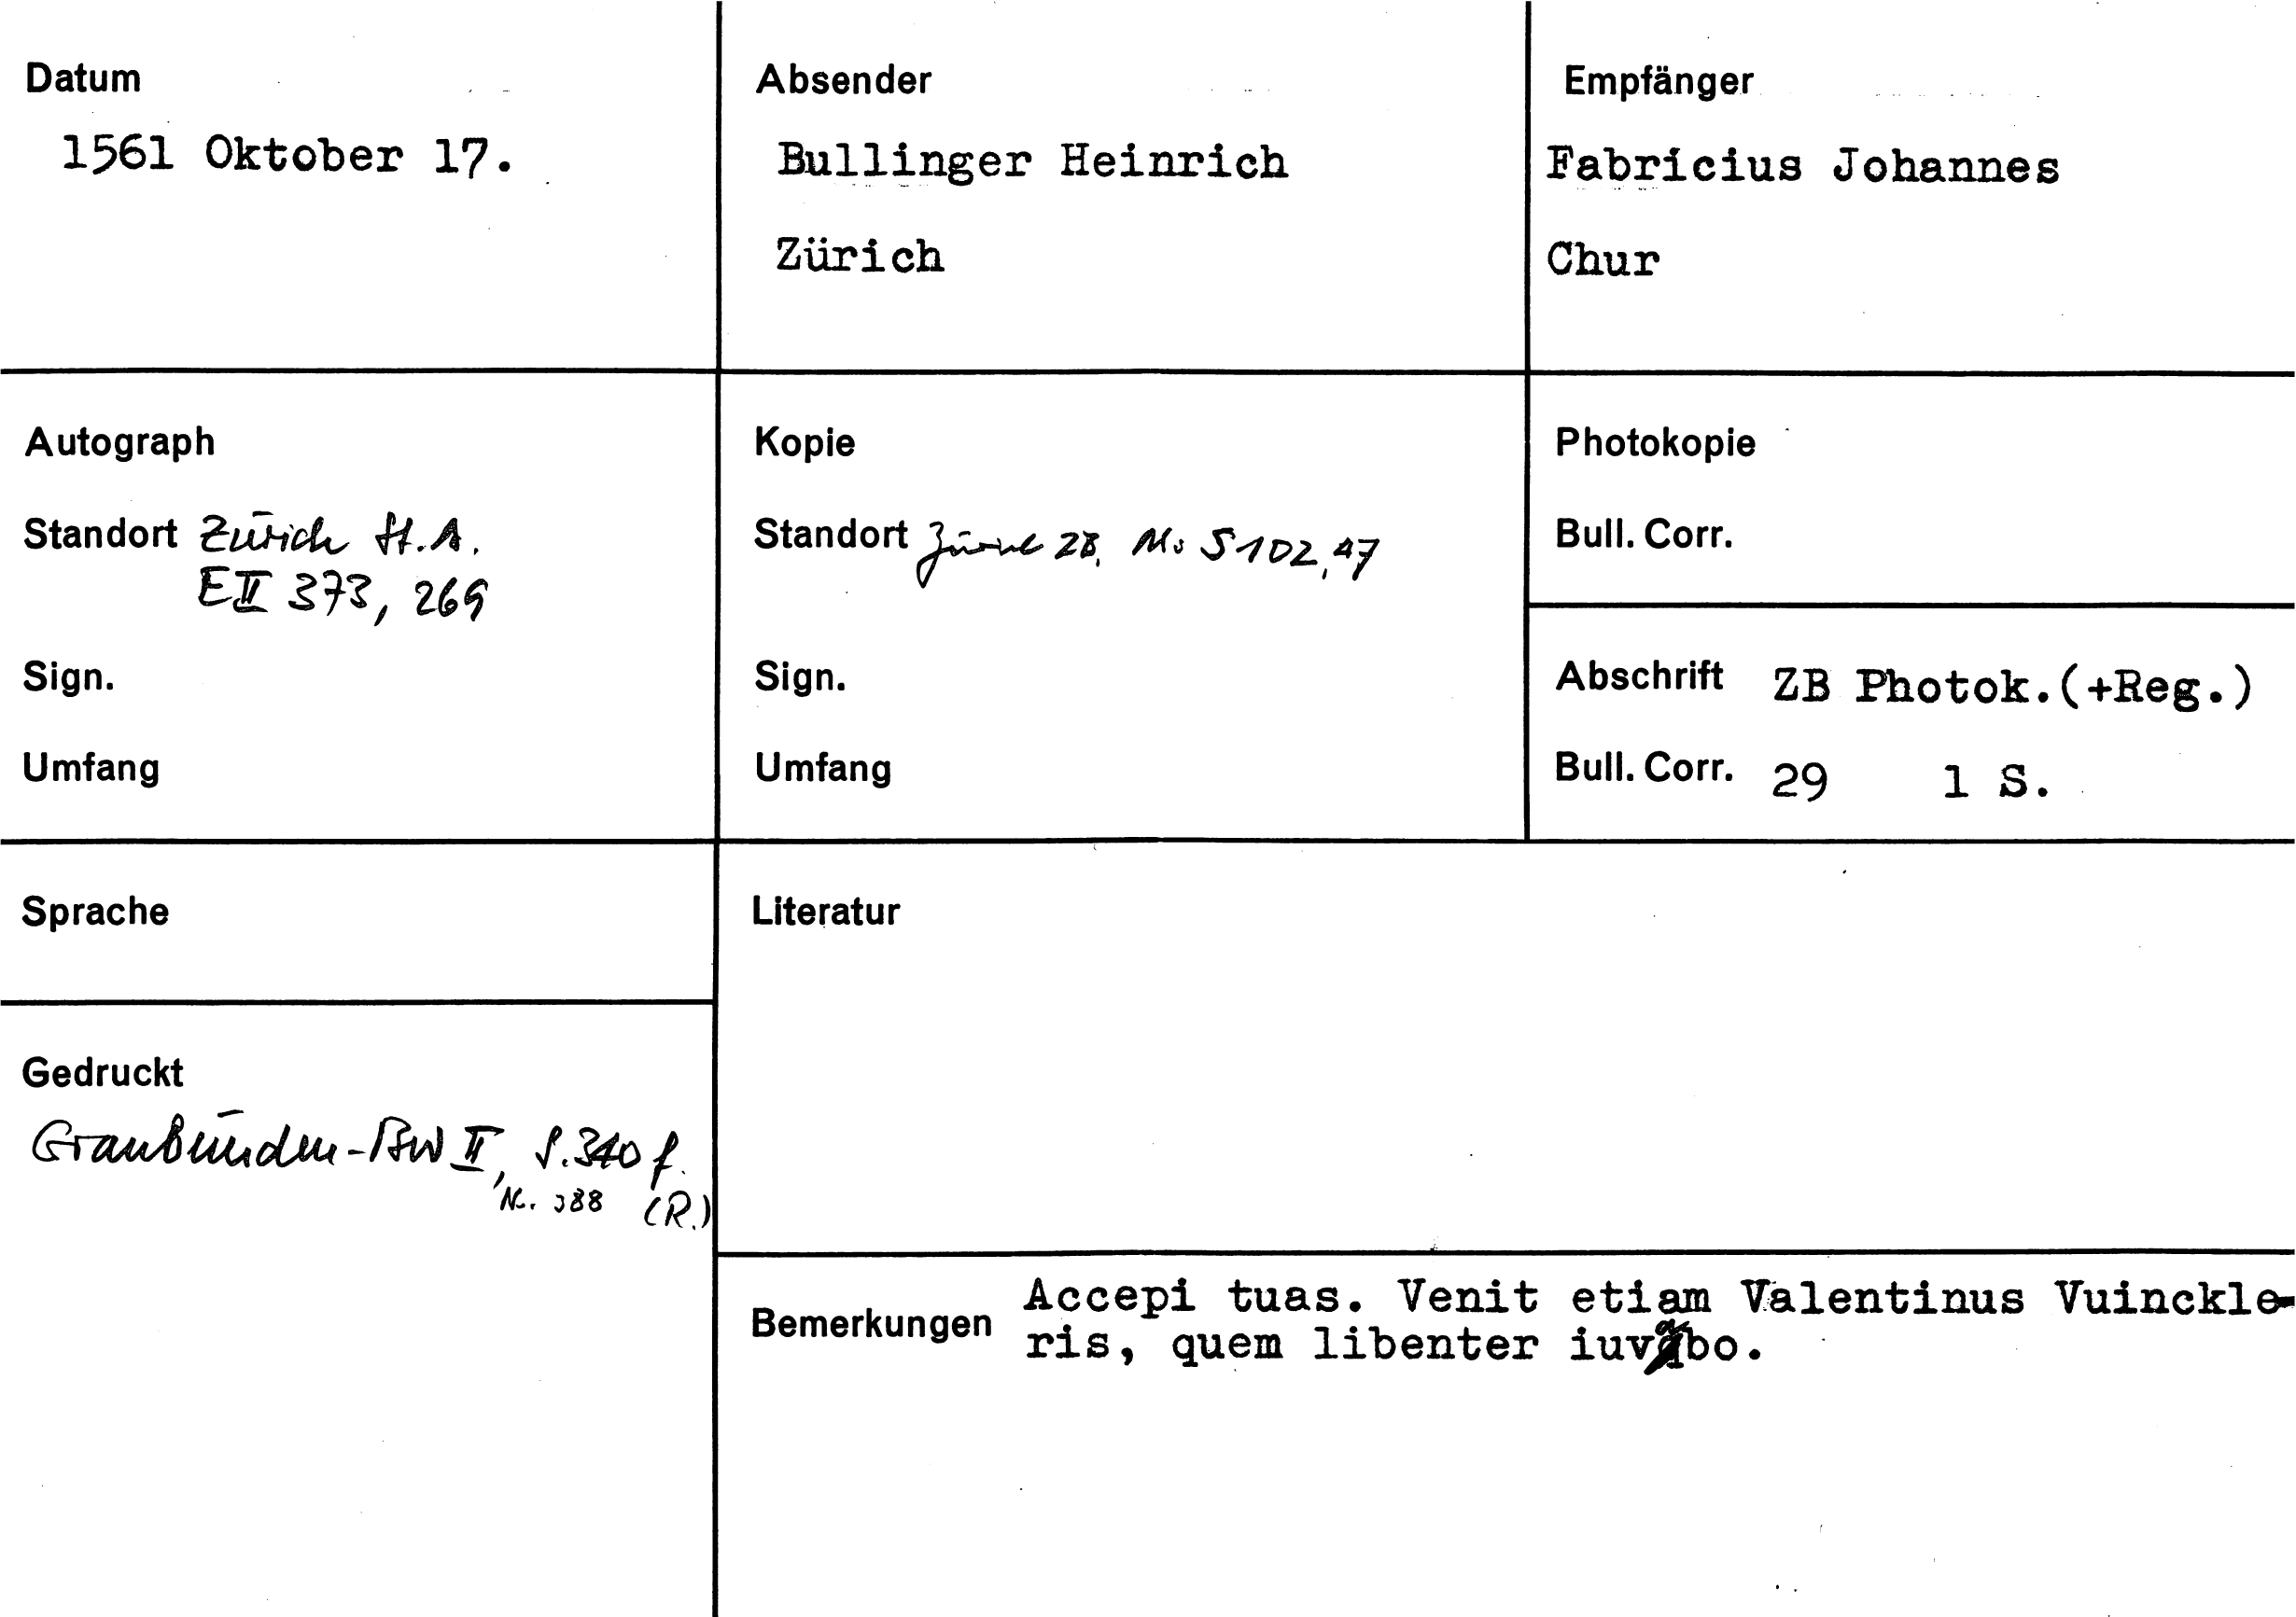 Datum
1561 Oktober 17.
Absender
Bullinger Heinrich
Zürich
Empfänger
Fabricius Johannes
Chur
Autograph
Standort Zürich St.A.
E II 373, 269
Sign.
Umfang
Kopie
Standort Zürich ZB, Ms S 102, 47
Sign.
Umfang
Photokopie
Bull. Corr.
Abschrift ZB Photok.(+Reg.)
Bull. Corr. 29 1 S.
Sprache
Literatur
Gedruckt
Graubünden-BW II, S. 340 f.
Nr. 388 (R.)
Bemerkungen
Accepi tuas. Venit etiam Valentinus Vuinckle-
ris, quem libenter iuvabo.